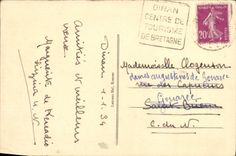 Dinan 1-1-34
Amitiés et meilleurs
vœux.
Marguerite de
DINAN
CENTRE DE
TOURISME
DE BRETAGNE
20c
Mademoiselle Clogenson
dames augustines de Gouarec
rue des Capucins
Gouarec
Saint-Brieuc
C. du N.